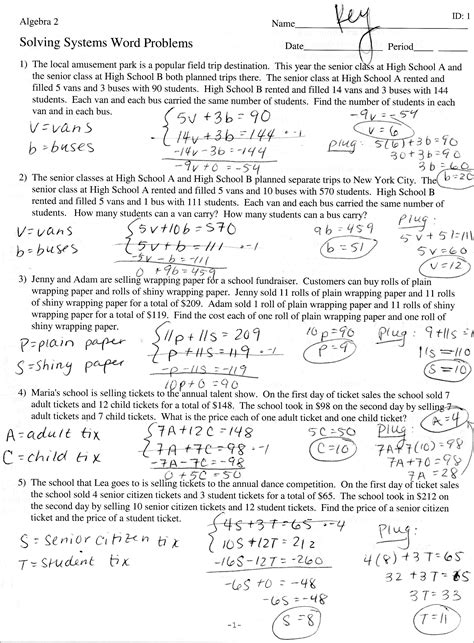 Algebra 2
Name Key
ID: 1
Solving Systems Word Problems
Date Period
1) The local amusement park is a popular field trip destination. This year the senior class at High School A and
the senior class at High School B both planned trips there. The senior class at High School A rented and
filled 5 vans and 3 buses with 90 students. High School B rented and filled 14 vans and 3 buses with 144
students. Each van and each bus carried the same number of students. Find the number of students in each
van and in each bus.
V=vans
b=buses
5v + 3b = 90
14v + 3b = 144 · -1
-14v - 3b = -144
-9v + 0 = -54
-9v = -54
v = 6
plug: 5(6)+3b=90
30+3b=90
3b=60
b=20
2) The senior classes at High School A and High School B planned separate trips to New York City. The
senior class at High School A rented and filled 5 vans and 10 buses with 570 students. High School B
rented and filled 5 vans and 1 bus with 111 students. Each van and each bus carried the same number of
students. How many students can a van carry? How many students can a bus carry?
V=vans
b=buses
5v + 10b = 570
5v + b = 111 · -1
-5v - b = -111
0 + 9b = 459
9b = 459
b = 51
plug:
5v + 51 = 111
5v = 60
v = 12
3) Jenny and Adam are selling wrapping paper for a school fundraiser. Customers can buy rolls of plain
wrapping paper and rolls of shiny wrapping paper. Jenny sold 11 rolls of plain wrapping paper and 11 rolls
of shiny wrapping paper for a total of $209. Adam sold 1 roll of plain wrapping paper and 11 rolls of shiny
wrapping paper for a total of $119. Find the cost each of one roll of plain wrapping paper and one roll of
shiny wrapping paper.
P=plain paper
S=shiny paper
11p + 11s = 209
p + 11s = 119 · -1
-p - 11s = -119
10p + 0 = 90
10p = 90
p = 9
Plug: 9+11s=
11s = 110
S = 10
4) Maria's school is selling tickets to the annual talent show. On the first day of ticket sales the school sold 7
adult tickets and 12 child tickets for a total of $148. The school took in $98 on the second day by selling 7
adult tickets and 7 child tickets. What is the price each of one adult ticket and one child ticket?
A=adult tix
C=child tix
7A + 12C = 148
7A + 7C = 98 · -1
-7A - 7C = -98
0 + 5C = 50
5C = 50
C = 10
Plug:
7A+7(10) = 98
7A+70 = 98
7A = 28
A = 4
5) The school that Lea goes to is selling tickets to the annual dance competition. On the first day of ticket sales
the school sold 4 senior citizen tickets and 3 student tickets for a total of $65. The school took in $212 on
the second day by selling 10 senior citizen tickets and 12 student tickets. Find the price of a senior citizen
ticket and the price of a student ticket.
S = Senior citizen tix
T = Student tix
4S + 3T = 65 · -4
10S + 12T = 212
-16S - 12T = -260
-6S + 0 = -48
-6S = -48
S = 8
Plug:
4(8) + 3T = 65
32 + 3T = 65
3T = 33
T = 11
-1-